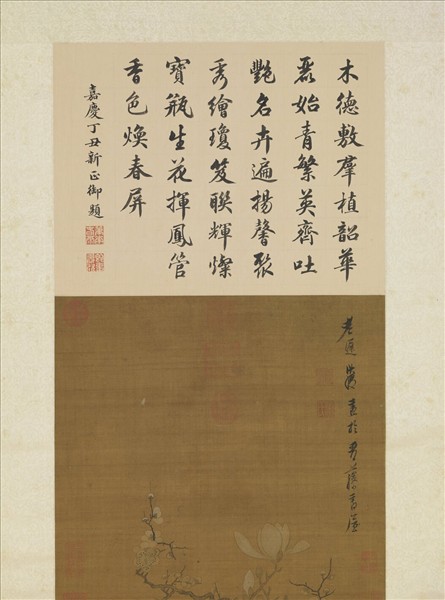 木德敷羣植韶華
麗始青繁英齊吐
艷名卉遍揚馨聚
秀繪瓊笈聯輝燦
寶瓶生花揮鳳管
香色煥春屏
嘉慶丁丑新正御題
老蓮 畫於 書屋